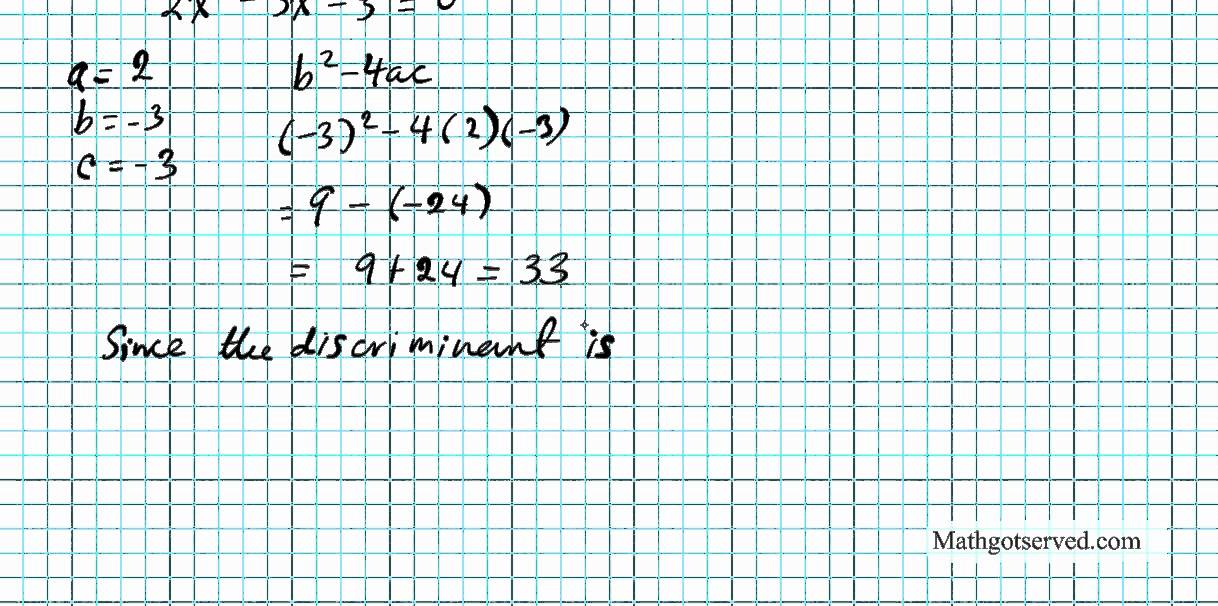 2x² - 3x - 3 = 0
a = 2
b = -3
c = -3
b² - 4ac
(-3)² - 4(2)(-3)
= 9 - (-24)
= 9 + 24 = 33
Since the discriminant is
Mathgotserved.com